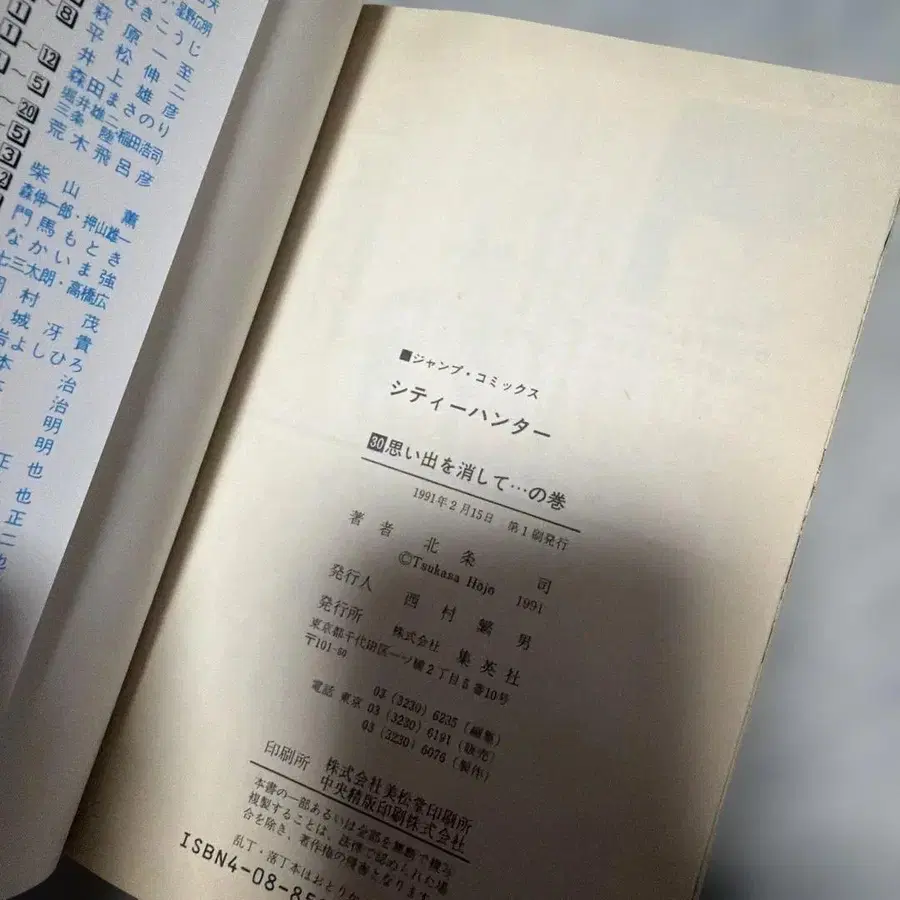 星野広明
こうじ
萩原一至
平松伸二
井上雄彦
森田まさのり
堀井雄二・稲田浩司
三条陸
荒木飛呂彦
柴山薫
森伸一郎・押山雄一
門馬もとき
なかいま強
七三太朗・高橋広
村茂
城冴貴
よしひろ
治
治
明
明
也
正也
正
二
■ジャンプ・コミックス
シティーハンター
30思い出を消して…の巻
1991年2月15日 第1刷発行
著者 北条司
©Tsukasa Hōjo 1991
発行人 西村繁男
発行所 株式会社 集英社
東京都千代田区一ツ橋2丁目5番10号
〒101-50
電話 東京 03(3230)6235(編集)
03(3230)6191(販売)
03(3230)6076(製作)
印刷所 株式会社美松堂印刷所
中央精版印刷株式会社
本書の一部あるいは全部を無断で複写
複製することは、法律で認められた場
合を除き、著作権の侵害となります。
乱丁・落丁本はおとり
ISBN4-08-85